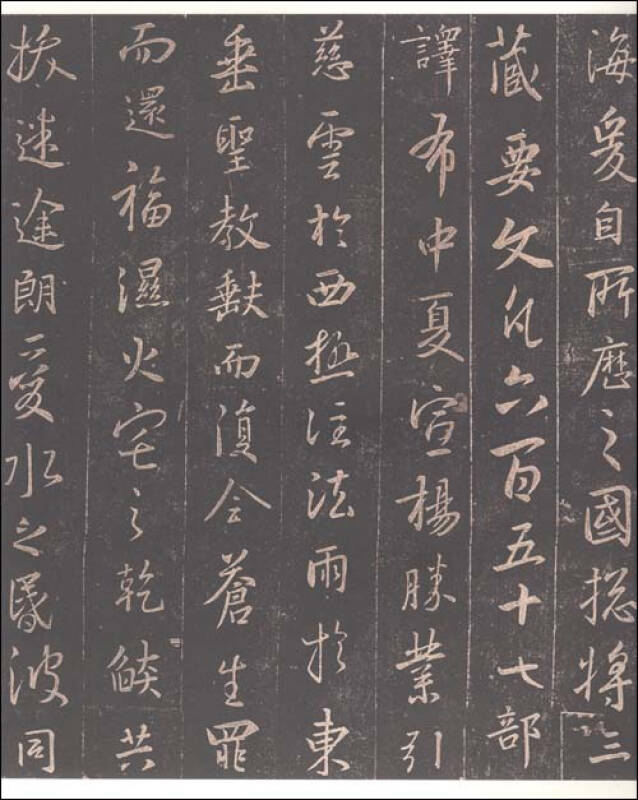 海爰自所歷之國揔將三
藏要文凡六百五十七部
譯布中夏宣楊勝業引
慈雲於西極注法雨於東
垂聖教缺而復全蒼生罪
而還福濕火宅之乾焰共
拔迷途朗愛水之昏波同